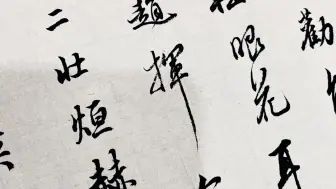 勸
眼花耳
趙揮
二壮烜赫